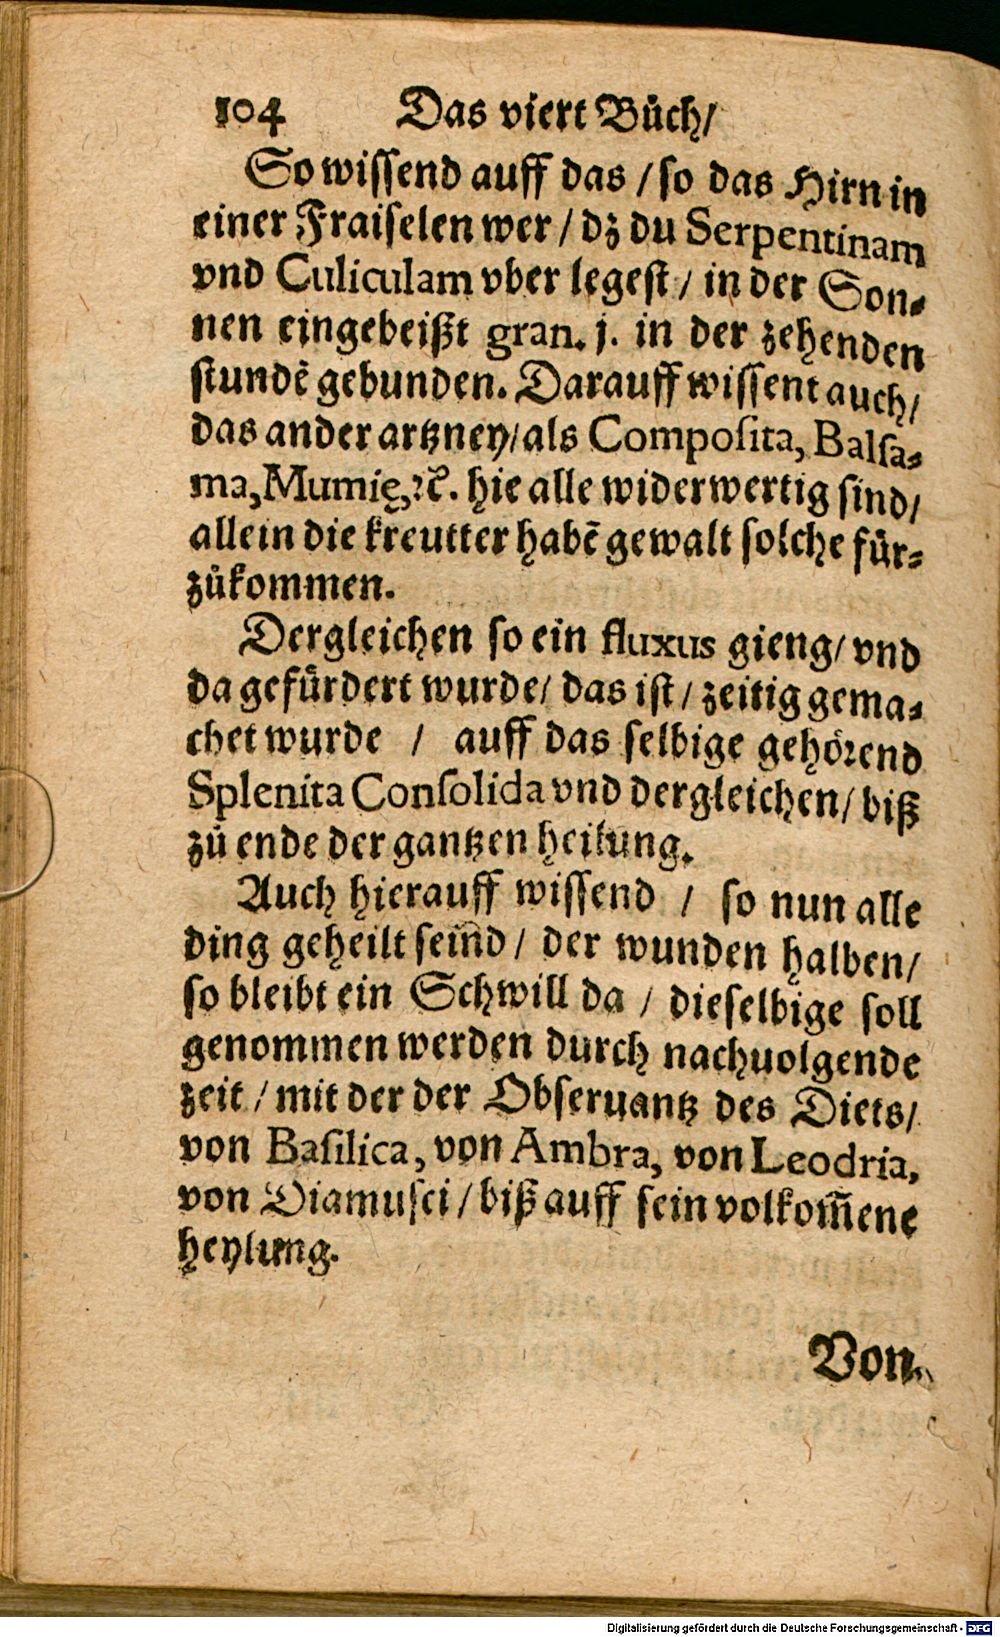 104 Das viert Bůch/
So wissend auff das / so das Hirn in
einer Fraiselen wer / dz du Serpentinam
vnd Culiculam vber legest / in der Son⸗
nen eingebeißt gran. j. in der zehenden
stundẽ gebunden. Darauff wissent auch/
das ander artzney/als Composita, Balsa⸗
ma, Mumię, ꝛc̃. hie alle widerwertig sind/
allein die kreutter habẽ gewalt solche für⸗
zůkommen.
Dergleichen so ein fluxus gieng/ vnd
da gefürdert wurde/ das ist / zeitig gema⸗
chet wurde / auff das selbige gehörend
Splenita Consolida vnd dergleichen/ biß
zů ende der gantzen heilung.
Auch hierauff wissend / so nun alle
ding geheilt seind / der wunden halben/
so bleibt ein Schwill da / dieselbige soll
genommen werden durch nachuolgende
zeit / mit der der Obseruantz des Diets/
von Basilica, von Ambra, von Leodria,
von Diamusci / biß auff sein volkom̃ene
heylung.
Von
Digitalisierung gefördert durch die Deutsche Forschungsgemeinschaft - DFG